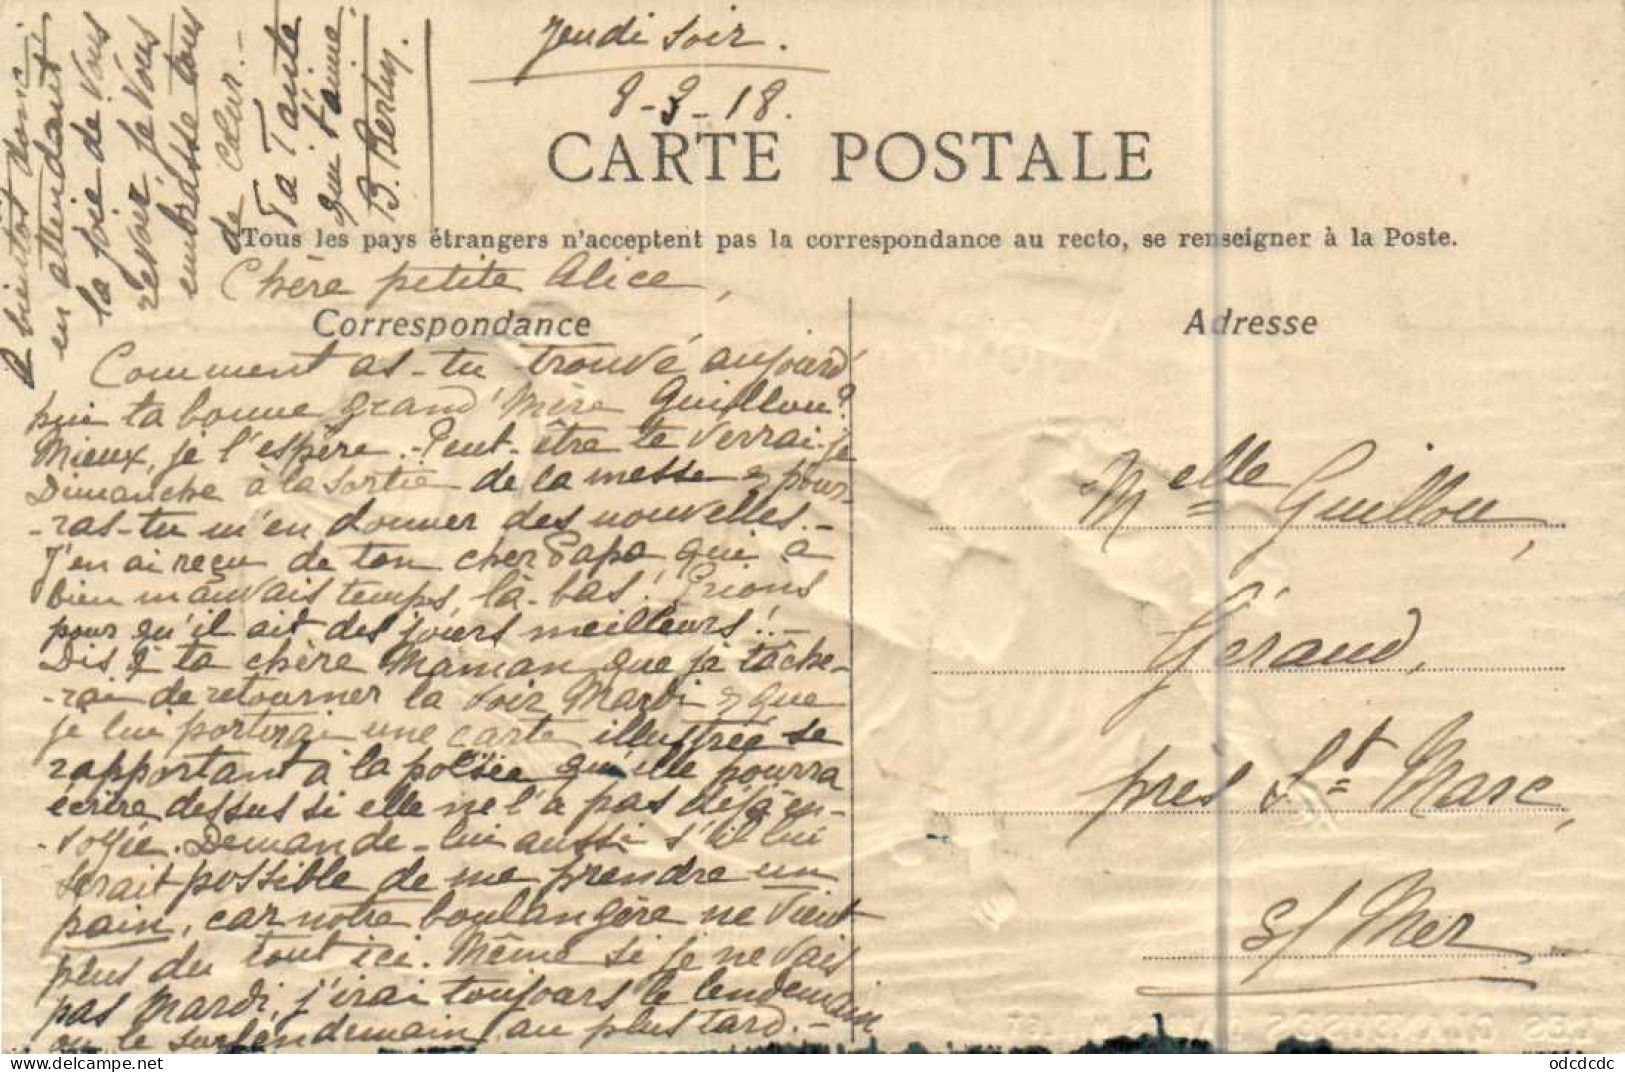 Jeudi soir.
8-3-18.
CARTE POSTALE
Tous les pays étrangers n'acceptent pas la correspondance au recto, se renseigner à la Poste.
Chère petite Alice,
Correspondance
Comment as-tu trouvé aujourd'
hui ta bonne grand'Mère Guillou?
Mieux, je l'espère. - Peut-être te verrai-je
Dimanche à la sortie de la messe & pour-
-ras-tu m'en donner des nouvelles. -
J'en ai reçu de ton cher Papa qui a
bien mauvais temps, là-bas! Prions
pour qu'il ait des jours meilleurs! -
Dis à ta chère Maman que je tâche-
-rai de retourner la voir Mardi & que
je lui porterai une carte illustrée se
rapportant à la poësie qu'elle pourra
écrire dessus si elle ne l'a pas déjà en-
-voyée. Demande-lui aussi s'il lui
serait possible de me prendre un
pain, car notre boulangère ne vient
plus du tout ici. Même si je ne vais
pas Mardi, j'irai toujours le lendemain
ou le surlendemain au plus tard. -
A bientôt donc;
en attendant
la joie de vous
revoir, je vous
embrasse tous
de cœur. -
Ta Tante
qui t'aime.
B. Bertin.
Adresse
Melle Guillou,
Géraud,
près St Marc,
s/ Mer
odcdcdc